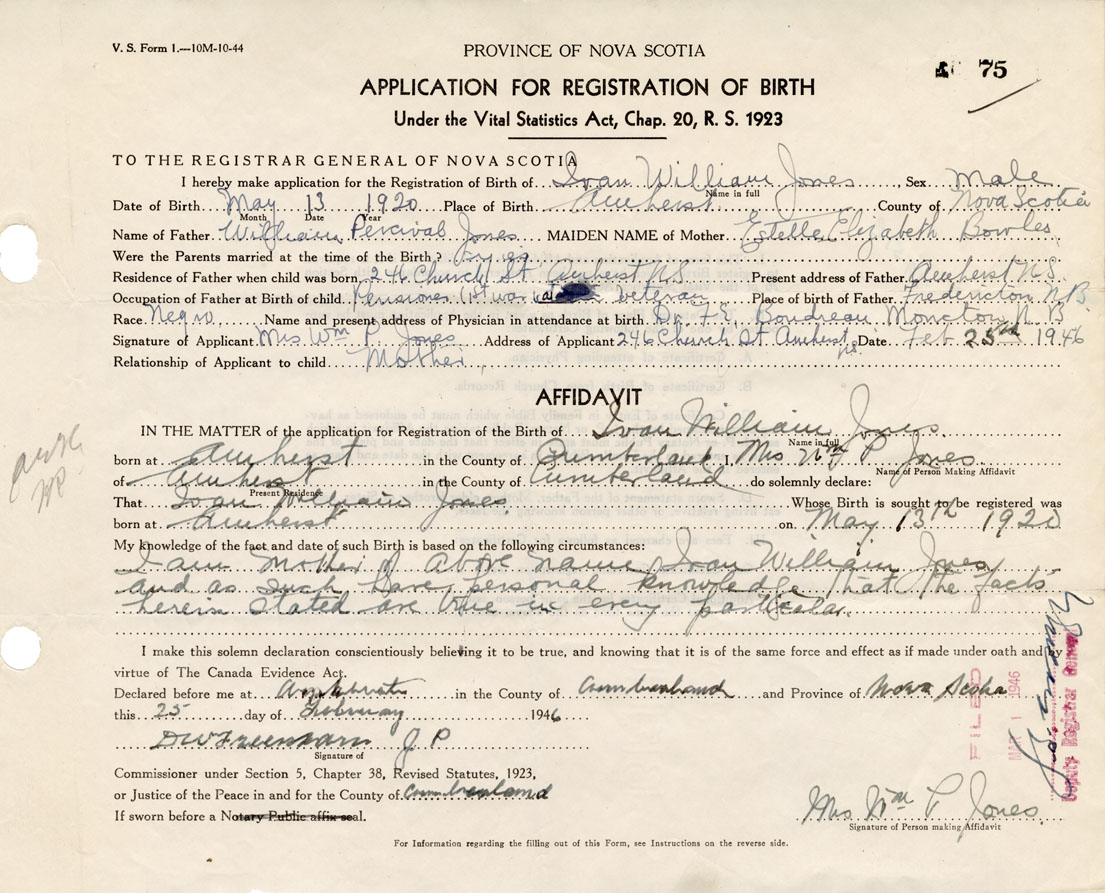 V. S. Form 1.—10M-10-44
PROVINCE OF NOVA SCOTIA
75
APPLICATION FOR REGISTRATION OF BIRTH
Under the Vital Statistics Act, Chap. 20, R. S. 1923
TO THE REGISTRAR GENERAL OF NOVA SCOTIA
I hereby make application for the Registration of Birth of Ivan William Jones, Sex Male
Name in full
Date of Birth May 13 1920 Place of Birth Amherst County of Nova Scotia
Month Date Year
Name of Father William Percival Jones MAIDEN NAME of Mother Estelle Elizabeth Bowles
Were the Parents married at the time of the Birth?
Residence of Father when child was born 246 Church St Amherst N S Present address of Father Amherst N S.
Occupation of Father at Birth of child Pensioner 1st war veteran Place of birth of Father Fredericton N B
Race Negro Name and present address of Physician in attendance at birth Dr F E. Boudreau Moncton N. B
Signature of Applicant Mrs Wm P. Jones Address of Applicant 246 Church St Amherst NS Date Feb 25th 1946
Relationship of Applicant to child Mother
AFFIDAVIT
IN THE MATTER of the application for Registration of the Birth of Ivan William Jones
Name in full
born at Amherst in the County of Cumberland, Mrs Wm P Jones
Name of Person Making Affidavit
of Amherst in the County of Cumberland do solemnly declare:
Present Residence
That Ivan William Jones Whose Birth is sought to be registered was
born at Amherst on May 13th 1920
My knowledge of the fact and date of such Birth is based on the following circumstances:
I am Mother of above name Ivan William Jones
and as such have personal knowledge that the facts
herein stated are true in every particular.
I make this solemn declaration conscientiously believing it to be true, and knowing that it is of the same force and effect as if made under oath and by
virtue of The Canada Evidence Act.
Declared before me at Amherst in the County of Cumberland and Province of Nova Scotia
this 25 day of February 1946
D W Freeman J P
Signature of
Commissioner under Section 5, Chapter 38, Revised Statutes, 1923,
or Justice of the Peace in and for the County of Cumberland
If sworn before a Notary Public affix seal.
Mrs Wm P Jones
Signature of Person making Affidavit
For Information regarding the filling out of this Form, see Instructions on the reverse side.
FILED
MAR 1 1946
Deputy Registrar General